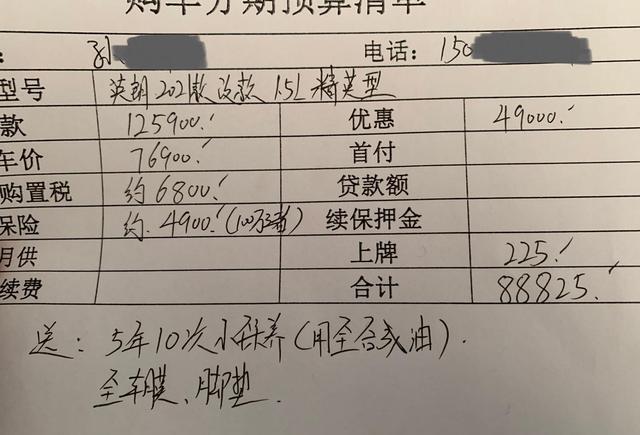 购车分期预算清单
: 孙 电话: 150
型号 英朗2021款 改款 1.5L 精英型
款 125900. 优惠 49000.
车价 76900. 首付
购置税 约6800. 贷款额
保险 约. 4900. (100万三者) 续保押金
月供 上牌 225.
续费 合计 88825.
送: 5年10次小保养(用全合成油).
全车膜、脚垫.